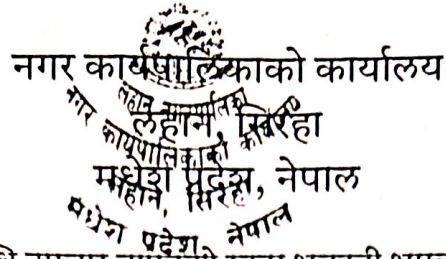 नगर कार्यपालिकाको कार्यालय
लहान, सिरहा
मधेश प्रदेश, नेपाल
नगर कार्यपालिकाको कार्यालय
लहान, सिरहा
मधेश प्रदेश, नेपाल